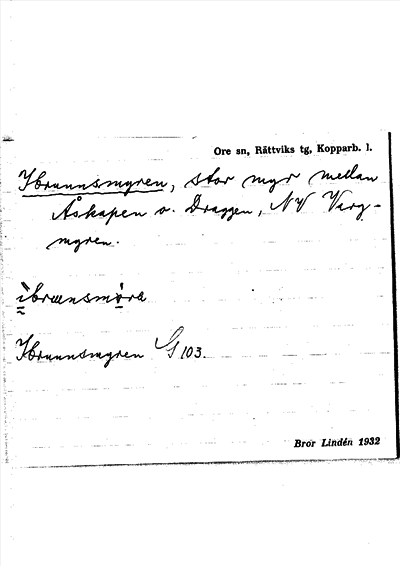 Ore sn, Rättviks tg, Kopparb. l.
Ibrunnsmyren, stor myr mellan
Åskapen o. Draggen, NV Varg-
myren.
ìbrunsmỳra
Ibrunnsmyren G 103.
Bror Lindén 1932